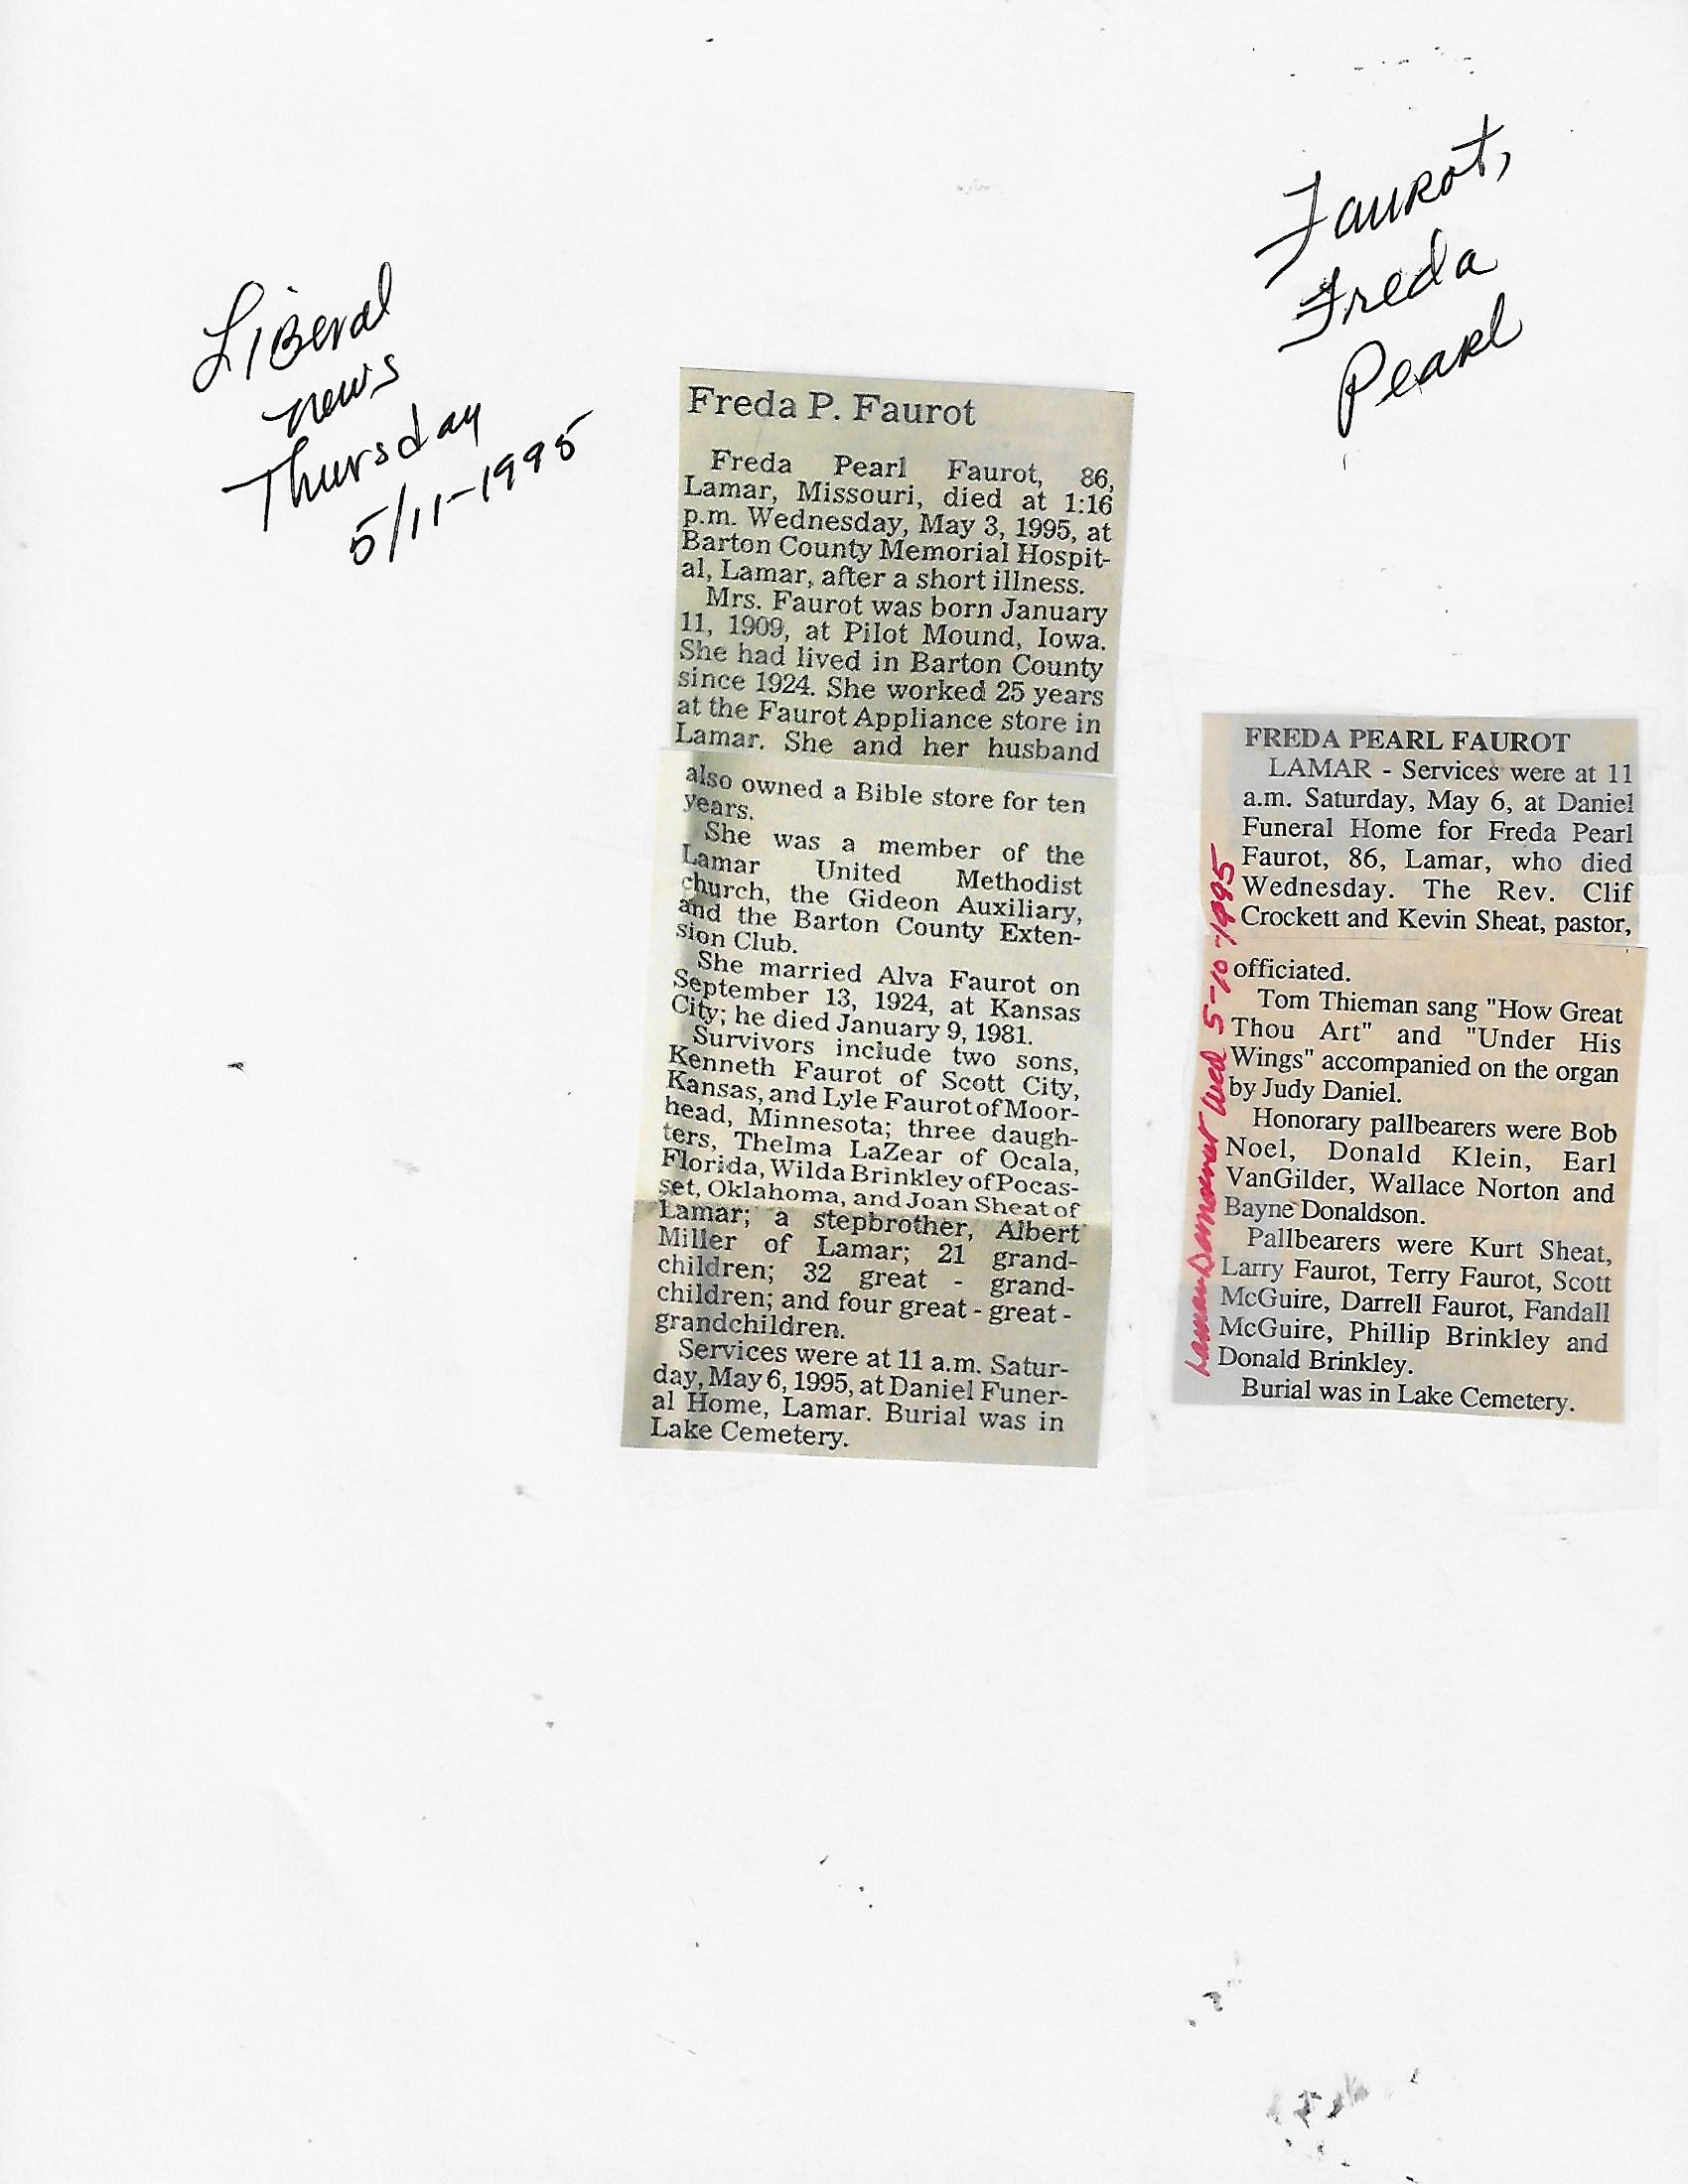 Faurot,
Freda
Pearl
Liberal
news
Thursday
5/11-1995
Freda P. Faurot
Freda Pearl Faurot, 86,
Lamar, Missouri, died at 1:16
p.m. Wednesday, May 3, 1995, at
Barton County Memorial Hospit-
al, Lamar, after a short illness.
Mrs. Faurot was born January
11, 1909, at Pilot Mound, Iowa.
She had lived in Barton County
since 1924. She worked 25 years
at the Faurot Appliance store in
Lamar. She and her husband
also owned a Bible store for ten
years.
She was a member of the
Lamar United Methodist
church, the Gideon Auxiliary,
and the Barton County Exten-
sion Club.
She married Alva Faurot on
September 13, 1924, at Kansas
City; he died January 9, 1981.
Survivors include two sons,
Kenneth Faurot of Scott City,
Kansas, and Lyle Faurot of Moor-
head, Minnesota; three daugh-
ters, Thelma LaZear of Ocala,
Florida, Wilda Brinkley of Pocas-
set, Oklahoma, and Joan Sheat of
Lamar; a stepbrother, Albert
Miller of Lamar; 21 grand-
children; 32 great - grand-
children; and four great - great -
grandchildren.
Services were at 11 a.m. Satur-
day, May 6, 1995, at Daniel Funer-
al Home, Lamar. Burial was in
Lake Cemetery.
FREDA PEARL FAUROT
LAMAR - Services were at 11
a.m. Saturday, May 6, at Daniel
Funeral Home for Freda Pearl
Faurot, 86, Lamar, who died
Wednesday. The Rev. Clif
Crockett and Kevin Sheat, pastor,
officiated.
Tom Thieman sang "How Great
Thou Art" and "Under His
Wings" accompanied on the organ
by Judy Daniel.
Honorary pallbearers were Bob
Noel, Donald Klein, Earl
VanGilder, Wallace Norton and
Bayne Donaldson.
Pallbearers were Kurt Sheat,
Larry Faurot, Terry Faurot, Scott
McGuire, Darrell Faurot, Fandall
McGuire, Phillip Brinkley and
Donald Brinkley.
Burial was in Lake Cemetery.
Lamar Democrat Wed 5-10-1995